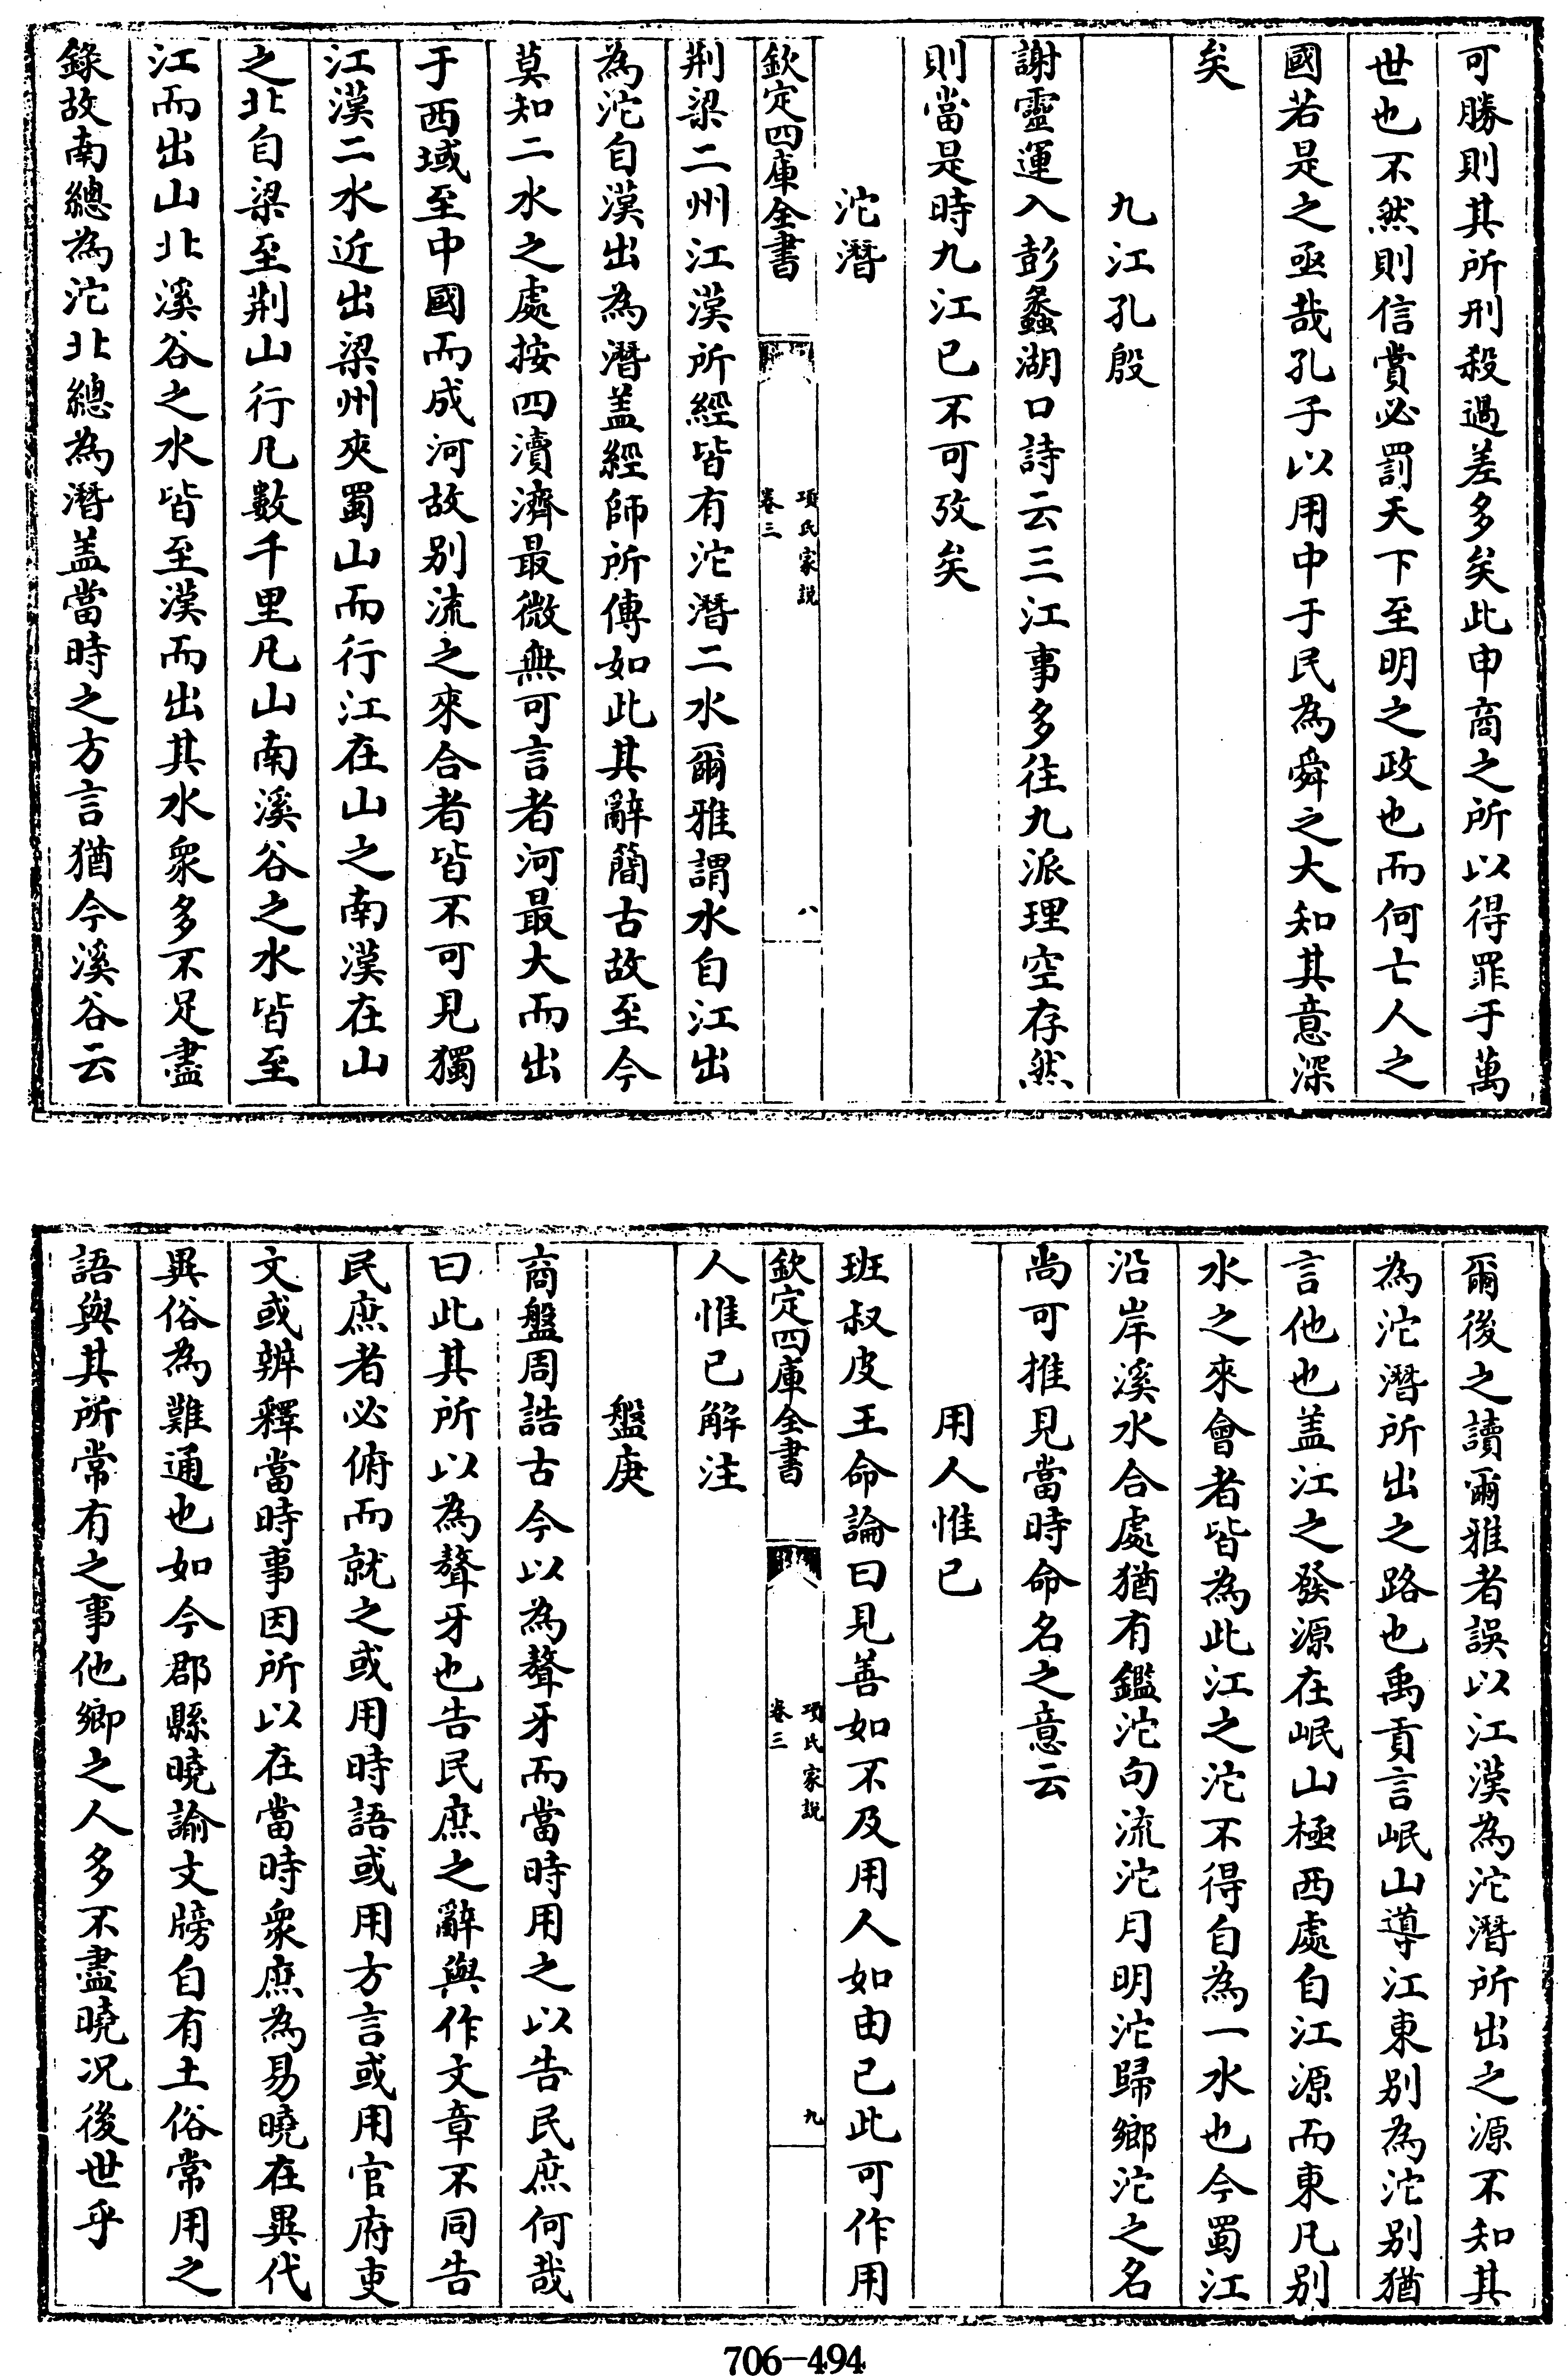 可勝則其所刑殺過差多矣此申商之所以得罪于萬
世也不然則信賞必罰天下至明之政也而何亡人之
國若是之亟哉孔子以用中于民為舜之大知其意深
矣
九江孔殷
謝靈運入彭蠡湖口詩云三江事多往九派理空存然
則當是時九江已不可攷矣
沱潛
欽定四庫全書
項氏家說
卷三
八
荆梁二州江漢所經皆有沱潛二水爾雅謂水自江出
為沱自漢出為潛盖經師所傳如此其辭簡古故至今
莫知二水之處按四瀆濟最微無可言者河最大而出
于西域至中國而成河故别流之來合者皆不可見獨
江漢二水近出梁州夾蜀山而行江在山之南漢在山
之北自梁至荆山行凡數千里凡山南溪谷之水皆至
江而出山北溪谷之水皆至漢而出其水衆多不足盡
錄故南總為沱北總為潛盖當時之方言猶今溪谷云
爾後之讀爾雅者誤以江漢為沱潛所出之源不知其
為沱潛所出之路也禹貢言岷山導江東别為沱别猶
言他也盖江之發源在岷山極西處自江源而東凡别
水之來會者皆為此江之沱不得自為一水也今蜀江
沿岸溪水合處猶有鑑沱句流沱月明沱歸鄉沱之名
尚可推見當時命名之意云
用人惟已
班叔皮王命論曰見善如不及用人如由已此可作用
欽定四庫全書
項氏家說
卷三
九
人惟已解注
盤庚
商盤周誥古今以為聱牙而當時用之以告民庶何哉
曰此其所以為聱牙也告民庶之辭與作文章不同告
民庶者必俯而就之或用時語或用方言或用官府吏
文或辨釋當時事因所以在當時衆庶為易曉在異代
異俗為難通也如今郡縣曉諭文牓自有土俗常用之
語與其所常有之事他鄉之人多不盡曉况後世乎
706-494